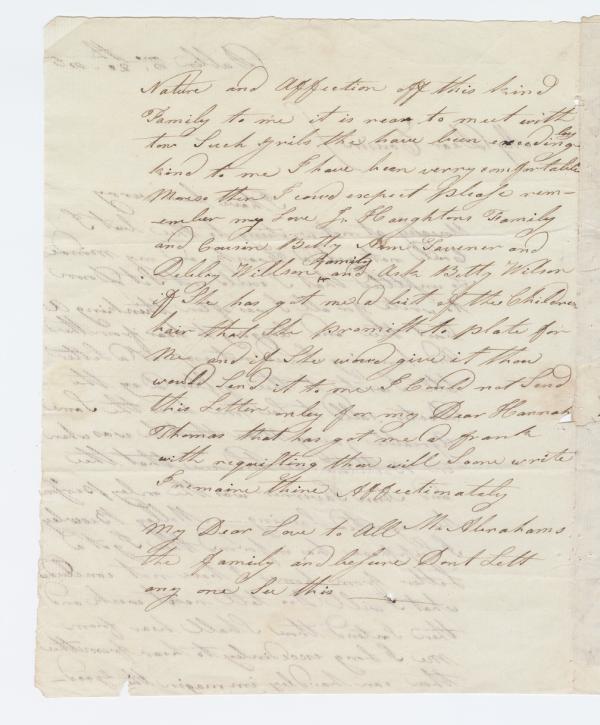 Nature and Affection off this kind
Family to me it is rear to meet with
tow Such grils the have been exceeding ly
kind to me I have been verry comfortable
More then I coud expect Please rem-
ember my Love Jn Haughtons Family
and Cousin Betty Ann Tavener and
Debby Willson family and Ask Betty Wilson
if She has got me a bit of the Childrens
hair that She promist to plate for
Me and if She woud give it thou
would Send it to me I Could not Send
this Letter onley for my Dear Hannah
Thomas that has got me a frank
with requisting thou will Soone write
I remaine thine Affectimately
My Dear Love to All Mr Abrahams
the family and before Dont Lett
any one See this